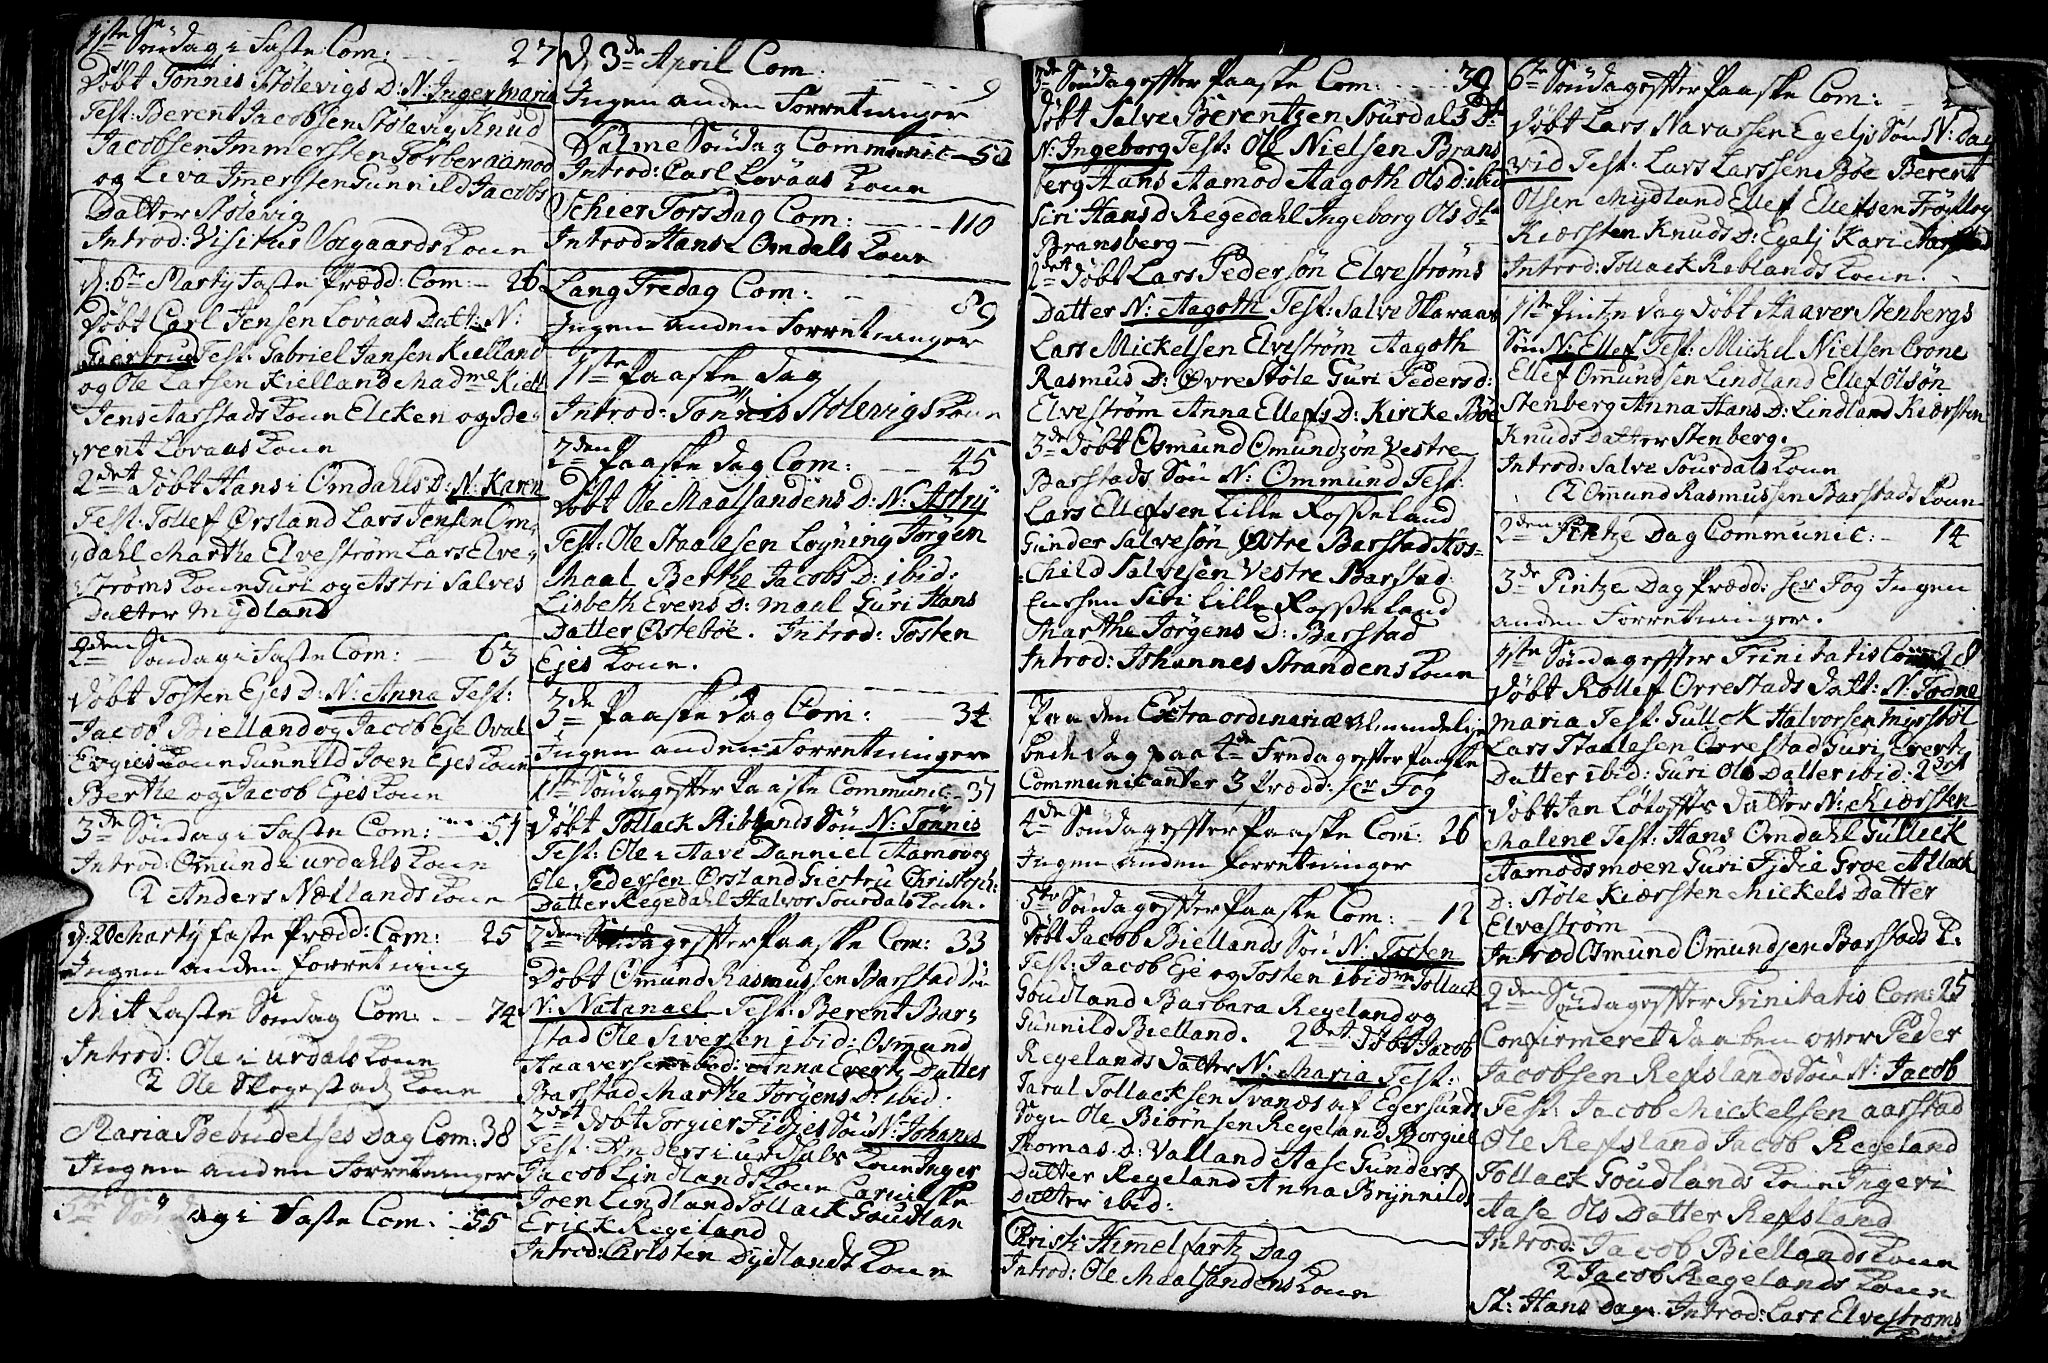 1ste Søndag i Faste Com: 27
Døbt Tönnis Stölevigs D: N: Inger Maria
Test: Berent Jacobsen Stölevig Knud
Jacobsen Immersten Torber aamod
og Liva Imersten Gunnild Jacobs
Datter Stölevig
Introd: Visitus Solgaards Kone
d: 6te Marty Faste Prædd: Com: 26
Døbt Carl Jensen Lovaas Datt: N:
Giertrud Test: Gabriel Jansen Kielland
og Ole Larsen Kielland Madme Kiell
Jens Aarstads Kone Elcken og Be-
rent Lovaas Kone
2det Döbt Hans i Omdahls D: N: Karen
Test: Tollef Ørsland Lars Jensen Om-
dahl Marthe Elveström Lars Elve-
ströms Kone Guri og Astri Salves
Datter Mydland
2den Søndag i Faste Com: 63
Døbt Tosten Ejes D: N: Anna Test:
Jacob Bielland og Jacob Eje Oval
Evgies Kone Gunnild Joen Ejes Kone
Berthe og Jacob Ejes Kone
3de Søndag i Faste Com: 51
Introd: Omund i urdahls Kone
2 Anders Nællands Kone
d: 20 Marty faste Prædd: Com: 25
Ingen anden forretning
Mit Faste Søndag Com: 74
Introd: Ole i urdals Kone
2 Ole Skegestad Kone
Maria Bebudelses Dag Com: 38
Ingen anden Forretninger
5te Søndag i Faste Com: 55
d 3de April Com: 9
Ingen anden Forretninger
Palme Søndag Communic 50
Introd: Carl Lovaas Kone
Schier Torsdag Com: 110
Introd Hans Omdals Kone
Lang Fredag Com: 89
Ingen anden Forretninger
1ste Paaske dag
Introd: Tönnis Stölevigs Kone
2den Paaske dag Com: 45
Döbt Ole Maalsandens D: N: Astrij
Test: Ole Staalesen Løyning Jörgen
Maal Berthe Jacobs D: ibid:
Lisbeth Evens D: Maal Guri Hans
Datter Østebøe. Introd: Tosten
Ejes Kone.
3de Paaske dag Com: 34
Ingen anden Forretninger
1ste Søndag effter Paaske Communic: 37
Döbt Tollack Riblands Sön N: Tönnis
Test: Ole i Aave Danniel Aamod og
Ole Pedersen Ørsland Giestru Christoph:
Datter Regedahl Halvor Sourdals Kone.
2den Søndag effter Paaske Com: 33
Döbt Omund Rasmussen Barstad Sön
N: Natanael Test: Berent Bar-
stad Ole Siversen ibid: Osmund
Haaversen ibid: Anna Evertz Datter
Barstad Marthe Jörgens D: ibid:
2det döbt Torgier Fidjes Sön N: Johanes
Test: Anders i urdals Kone Inger
Jacob Lindlands Kone
Joen Lindland Tollack Goudlan
Erick Regeland
Introd: Carlsten Dydlands Kone
3de Søndag effter Paaske Com: 39
Döbt Salve Berentzen Sourdals Dt
N: Ingeborg Test: Ole Nielsen Brans
berg Hans Aamod Aagoth Ols D: ibid
Siri Hans D Regedahl Ingeborg Ols Dt
Bransberg
2det Döbt Lars Pedersön Elveströms
Datter N: Aagoth Test: Salve Skaraas
Lars Mickelsen Elveström Aagoth
Rasmus D: Øvre Støle Guri Peders d:
Elveström Anna Ellefs D: Kircke Böe
3de Döbt Osmund Omundzön Vestre
Barstads Sön N: Ommund Test:
Lars Ellefsen Lille Rosseland
Gunder Salvesön Østre Barstad Aas-
child Salvesen Vestre Barstad
Siri Lille Rosseland
Marthe Jörgens D: Barstad
Introd: Johannes Strandens Kone
Paa den Extra ordinariæ Almindelige
bede dag paa 4de Fredag effter Paaske
Communicanter 3 Prædd: Hr Fog
4de Søndag effter Paaske Com: 26
Ingen anden forretninger
5te Søndag effter Paaske Com: 12
Döbt Jacob Biellands Sön N: Tosten
Test: Jacob Eje og Tosten ibidm Tollack
Goudland Barbara Regeland og
Gunnild Bielland. 2det Döbt Jacob
Regelands Datter N: Maria Test:
Taral Tollacksen Svanæs af Egersunds
Sogn Ole Biörnsen Regeland Borgiel
Thomas D: Valland Aase Gunders
Datter Regeland Anna Brynnilds
Datter ibid:
Christi Himmelfartz Dag
Introd: Ole Maalsandens Kone
6te Søndag effter Paaske Com:
Døbt Lars Navarsen Egelj Søn N: Da-
vid Test: Lars Larssen Bøe Berent
Olsen Mydland Ellef Ellefsen Fröytlog
Kiersten Knuds D: Egelj Kari
Introd: Tollack Riblands Kone.
1ste Pintze dag döbt Haaver Stenbergs
Sön N: Ellef Test: Mickel Nielsen Crone
Ellef Omundsen Lindland Ellef Olsön
Stenberg Anna Hans D: Lindland Kiersten
Knuds Datter Stenberg.
Introd: Salve Sourdals Kone
2 Omund Rasmussen Barstads Kone
2den Pintze Dag Communic: 14
3de Pintze Dag Prædd: Hr Fog Ingen
anden Forretninger.
1ste Søndag effter Trinitatis Com 28
Döbt Rollef Orrestads Datt: N: Todne
Maria Test: Gullek Halvorsen Myrstöl
Lars Staalesen Orrestad Guri Evertz
Datter ibid: Guri Ols Datter ibid: 2det
Döbt Jan Løtoffts Datter N: Kiersten
Malene Test: Hans Omdahl Gullick
Aamodsmoen Guri Fidie Groe Atlack
D: Støle Kiersten Mickels Datter
Elveström
Introd Osmund Omundsen Barstads K:
2den Søndag effter Trinitatis Com: 25
Confirmeret daaben over Peder
Jacobsen Refslands Sön N: Jacob
Test: Jacob Mickelsen aarstad
Ole Refsland Jacob Regeland
Tollack Goudlands Kone Ingeri
Aase Ols Datter Refsland
Introd: Jacob Biellands Kone
2 Jacob Regelands Kone
St: Hans Dag. Introd: Lars Elvestroms
Kone